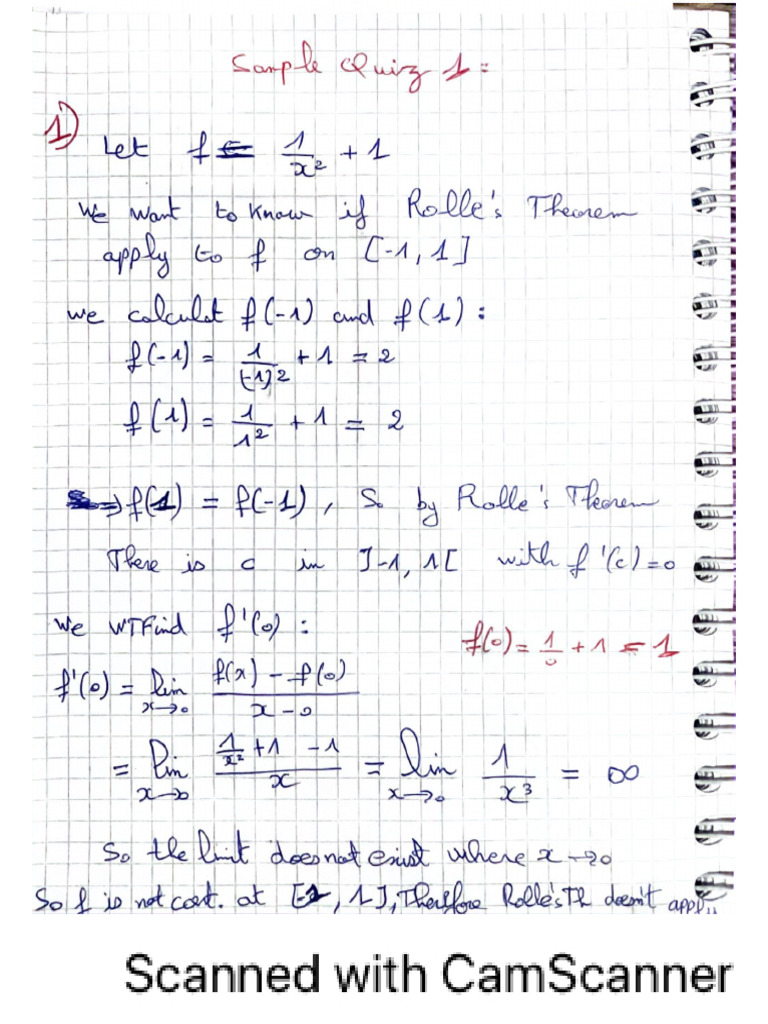 Sample Quiz 1:
1) Let f = 1/x² + 1
We want to know if Rolle's Theorem
apply to f on [-1, 1]
we calculat f(-1) and f(1) :
f(-1) = 1/(-1)² + 1 = 2
f(1) = 1/1² + 1 = 2
=> f(1) = f(-1), So by Rolle's Theorem
There is c in ]-1, 1[ with f'(c)=0
We WTFind f'(0) :
f(0) = 1/0 + 1 = 1
f'(0) = lim x→0 (f(x) - f(0))/(x - 0)
= lim x→0 (1/x² + 1 - 1)/x = lim x→0 1/x³ = ∞
So the limit does not exist where x→0
So f is not cont. at [-1, 1], Therfore Rolle's Th doesn't apply
Scanned with CamScanner